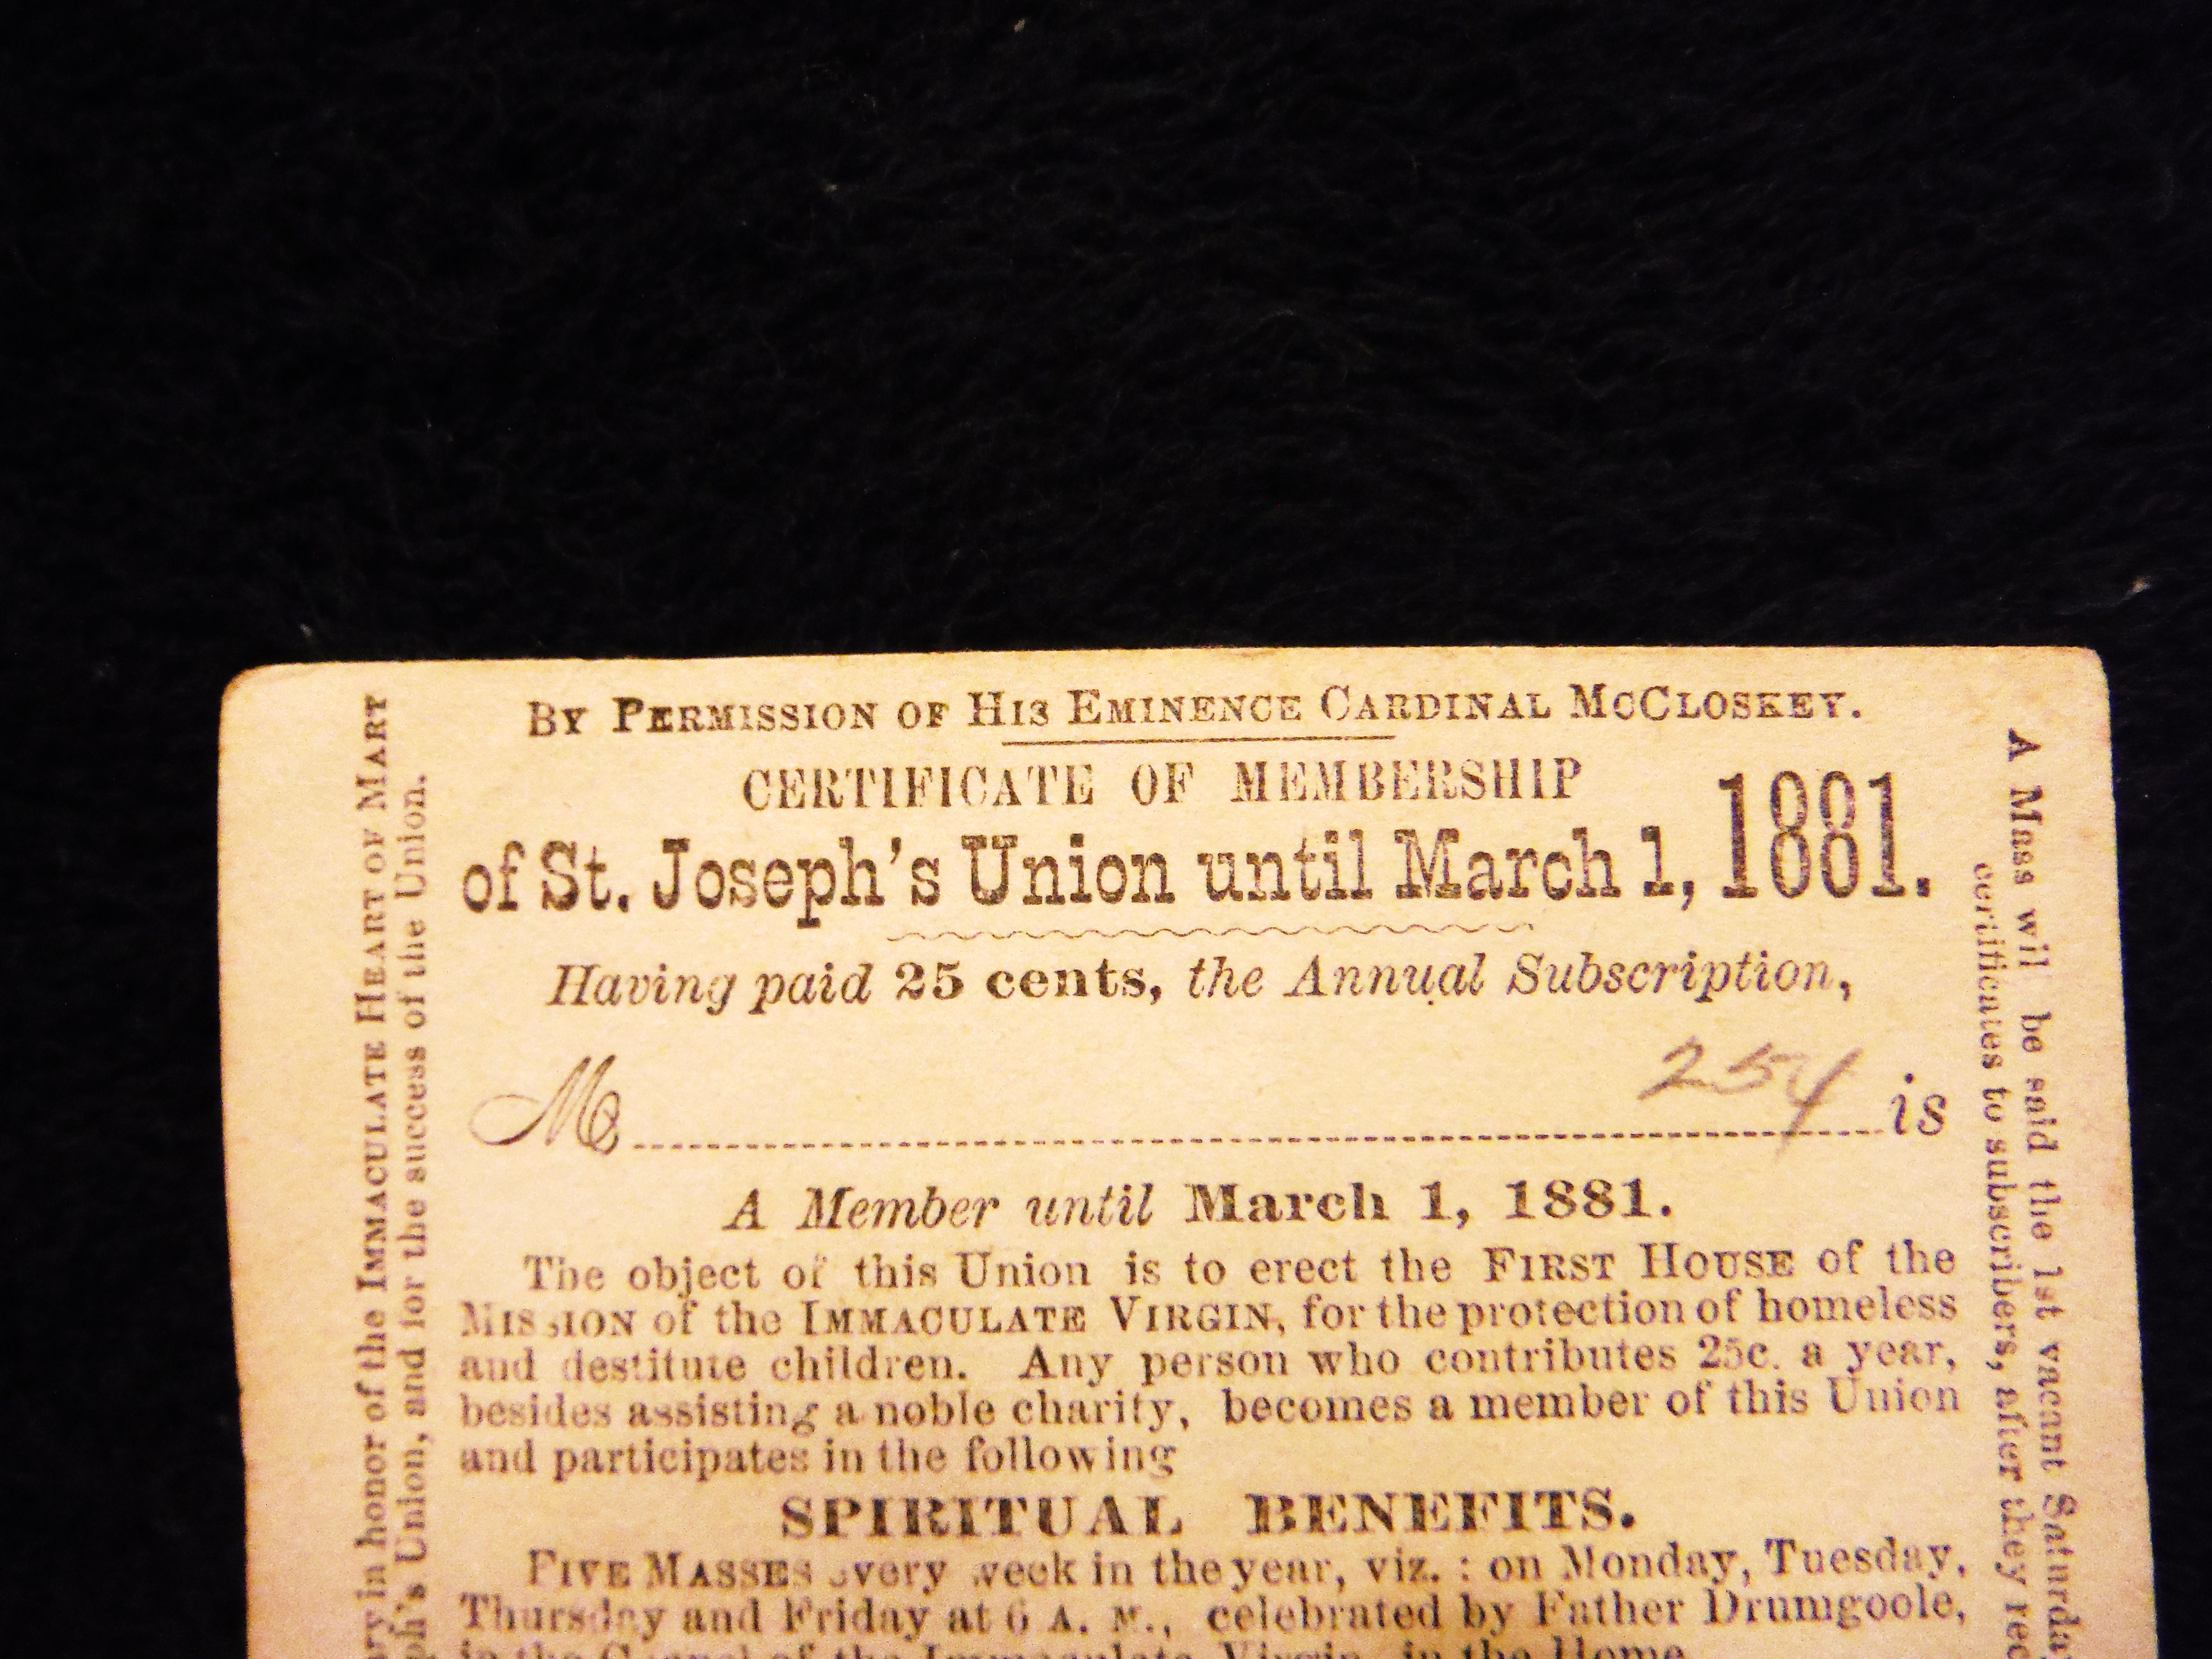 BY PERMISSION OF HIS EMINENCE CARDINAL MCCLOSKEY.
CERTIFICATE OF MEMBERSHIP
of St. Joseph's Union until March 1, 1881.
Having paid 25 cents, the Annual Subscription,
M 254 is
A Member until March 1, 1881.
The object of this Union is to erect the FIRST HOUSE of the
MISSION of the IMMACULATE VIRGIN, for the protection of homeless
and destitute children. Any person who contributes 25c. a year,
besides assisting a noble charity, becomes a member of this Union
and participates in the following
SPIRITUAL BENEFITS.
FIVE MASSES every week in the year, viz. : on Monday, Tuesday,
Thursday and Friday at 6 A. M., celebrated by Father Drumgoole,
in the of the Immaculate Virgin, in the Home
in honor of the IMMACULATE HEART OF MARY
Union, and for the success of the Union.
A Mass will be said the 1st vacant Saturday
certificates to subscribers, after they